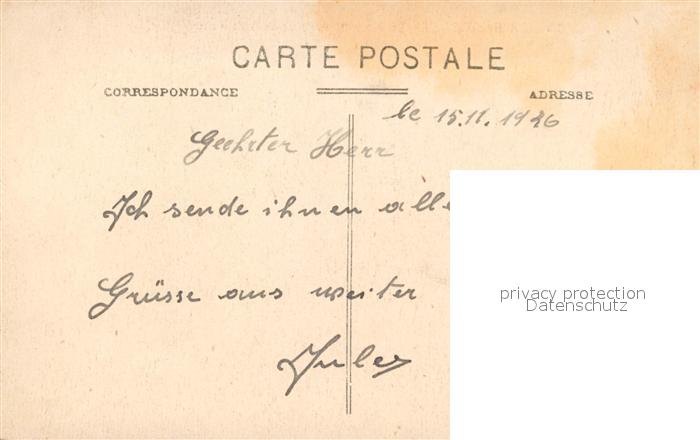 CARTE POSTALE
CORRESPONDANCE
ADRESSE
le 15.11.1926
Geehrter Herr
Ich sende ihnen alle
Grüsse aus weiter
Jules
privacy protection
Datenschutz